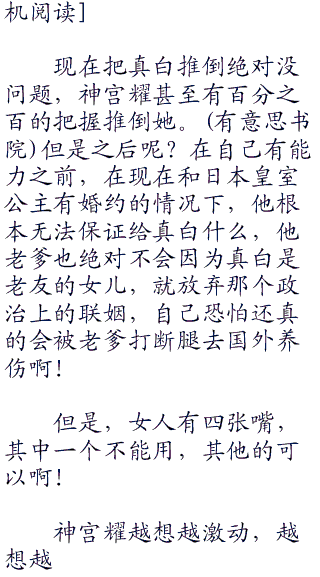 机阅读]
现在把真白推倒绝对没
问题，神宫耀甚至有百分之
百的把握推倒她。(有意思书
院)但是之后呢？在自己有能
力之前，在现在和日本皇室
公主有婚约的情况下，他根
本无法保证给真白什么，他
老爹也绝对不会因为真白是
老友的女儿，就放弃那个政
治上的联姻，自己恐怕还真
的会被老爹打断腿去国外养
伤啊！
但是，女人有四张嘴，
其中一个不能用，其他的可
以啊！
神宫耀越想越激动，越
想越